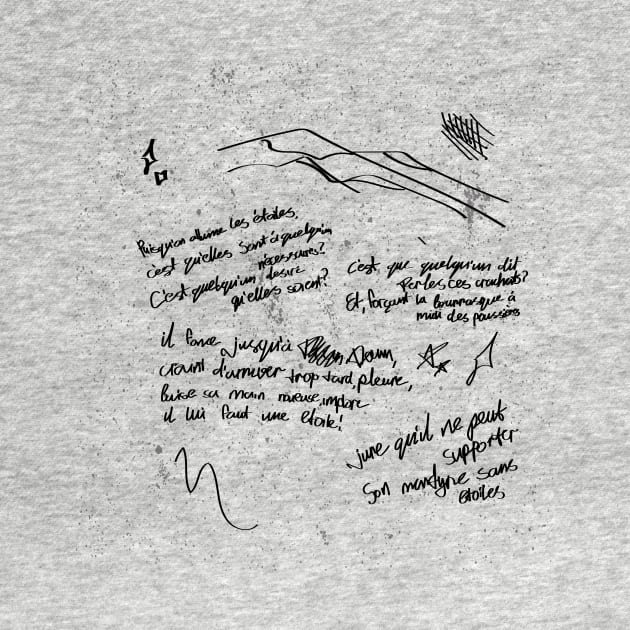 Puisqu'on allume les étoiles,
c'est qu'elles sont à quelqu'un
nécessaires?
C'est quelqu'un desire
qu'elles soient?
c'est que quelqu'un dit
Perles ces crachats?
Et, forçant la bourrasque à
midi des poussières
il fonce jusqu'à
craint d'arriver trop tard, pleure,
baise sa main noueuse, implore
il lui faut une etoile!
jure qu'il ne peut
supporter
son martyre sans
etoiles